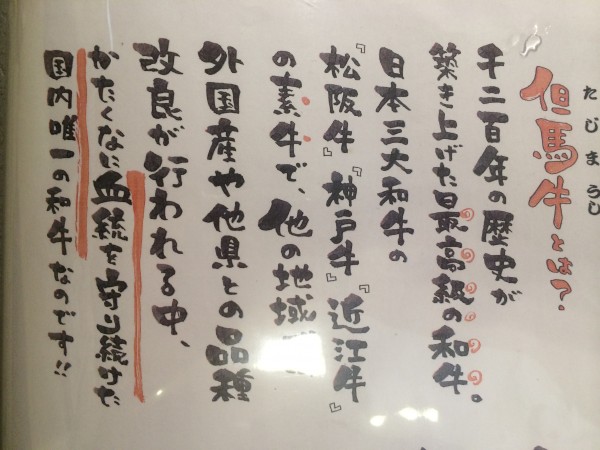 たじまうし
但馬牛とは?
千二百年の歴史が
築き上げた日最高級の和牛。
日本三大和牛の
『松阪牛』『神戸牛』『近江牛』
の素牛で、他の地域
外国産や他県との品種
改良が行われる中、
かたくなに血統を守り続けた
国内唯一の和牛なのです!!